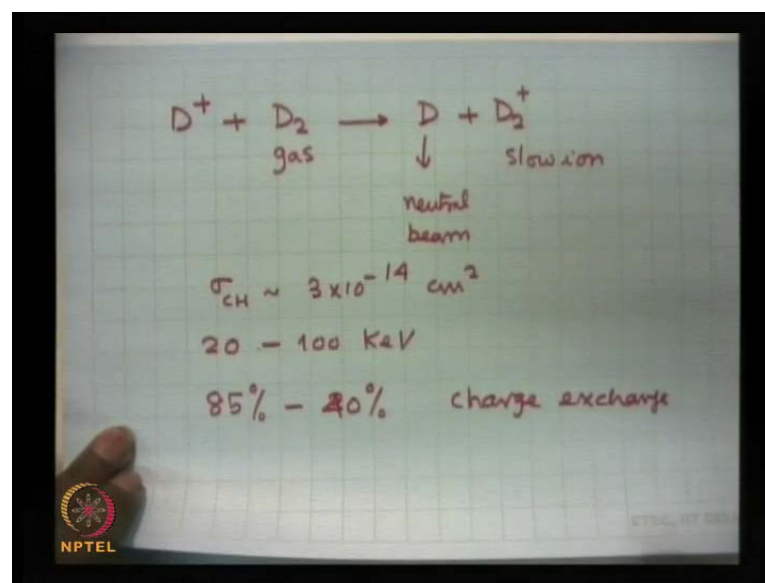 D⁺ + D₂ → D + D₂⁺
gas ↓ slow ion
neutral
beam
σ_CH ~ 3×10⁻¹⁴ cm²
20 – 100 KeV
85% – 20% charge exchange
NPTEL